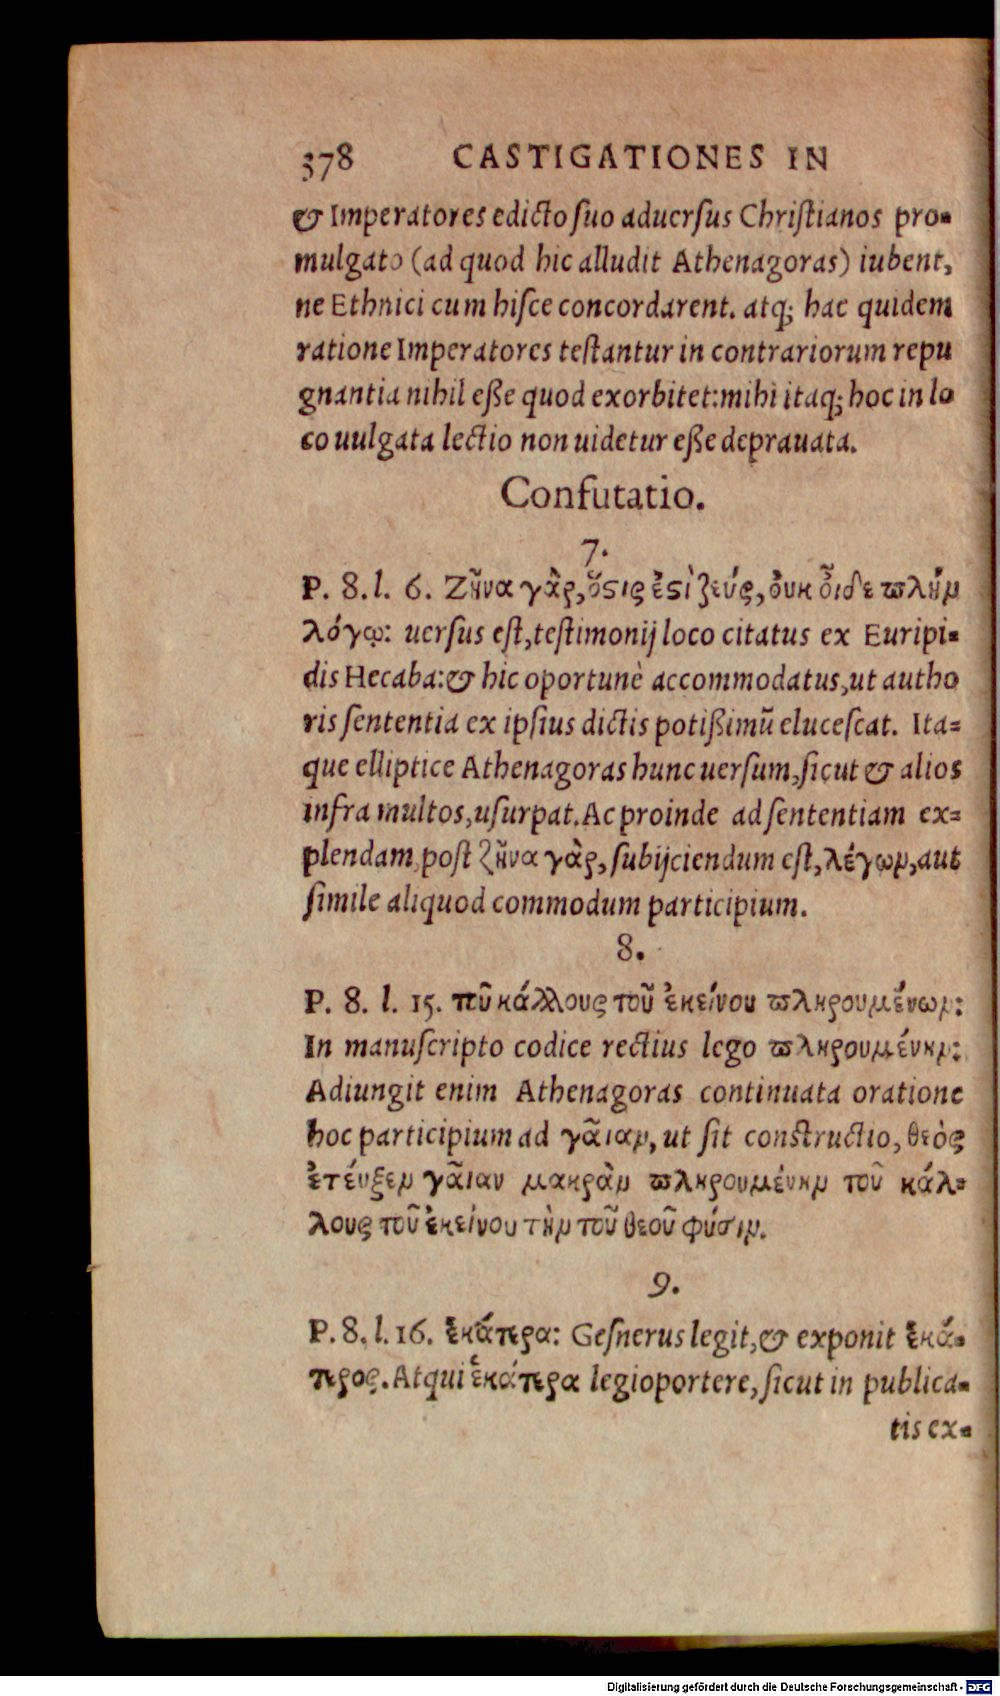 378 CASTIGATIONES IN
& Imperatores edicto suo aduersus Christianos pro-
mulgato (ad quod hic alludit Athenagoras) iubent,
ne Ethnici cum hisce concordarent. atq; hac quidem
ratione Imperatores testantur in contrariorum repu
gnantia nihil eße quod exorbitet: mihi itaq; hoc in lo
co uulgata lectio non uidetur eße deprauata.
Confutatio.
7.
P. 8. l. 6. Ζῆνα γὰρ, ὅςις ἐςὶ ζεύς, ὀυκ ὂιδε πλὴν
λόγῳ: uersus est, testimonij loco citatus ex Euripi-
dis Hecaba: & hic oportunè accommodatus, ut autho
ris sententia ex ipsius dictis potißimũ elucescat. Ita-
que elliptice Athenagoras hunc uersum, sicut & alios
infra multos, usurpat. Ac proinde ad sententiam ex-
plendam, post ζῆνα γὰρ, subijciendum est, λέγων, aut
simile aliquod commodum participium.
8.
P. 8. l. 15. πῦ κάλλους τοῦ ἐκείνου πληρουμένων:
In manuscripto codice rectius lego πληρουμένην:
Adiungit enim Athenagoras continuata oratione
hoc participium ad γᾶιαν, ut sit constructio, θεὸς
ἐτέυξεν γᾶιαν μακρὰν πληρουμένην τοῦ κάλ-
λους τοῦ ἐκείνου τὴν τοῦ θεοῦ φύσιν.
9.
P. 8. l. 16. ἑκάτερα: Gesnerus legit, & exponit ἑκά-
τερος. Atqui ἑκάτερα legi oportere, sicut in publica-
tis ex-
Digitalisierung gefördert durch die Deutsche Forschungsgemeinschaft - DFG